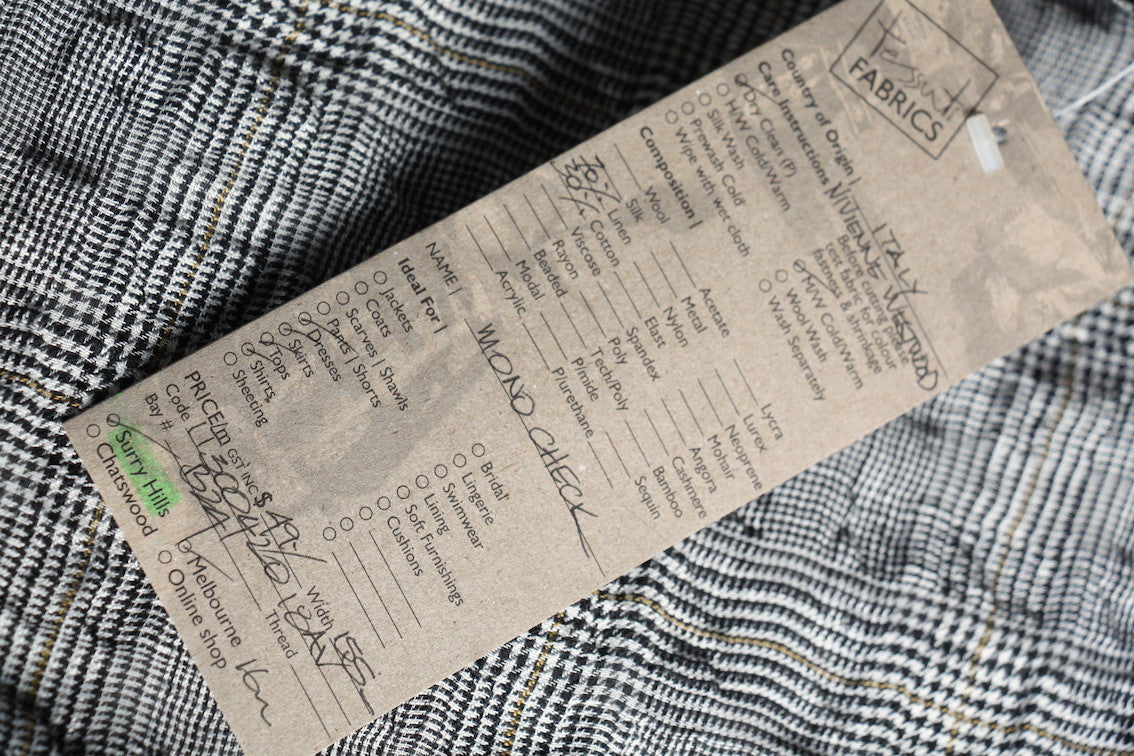 Tessuti
FABRICS
Country of Origin | ITALY
Care Instructions VIVIENNE WESTWOOD
Dry Clean (P)
H/W Cold/Warm
Silk Wash
Prewash Cold
Wipe with wet cloth
Before cutting please
test fabric for colour
fastness & shrinkage
M/W Cold/Warm
Wool Wash
Wash Separately
Composition |
Wool
Silk
70% Linen
30% Cotton
Viscose
Rayon
Beaded
Modal
Acrylic
Acetate
Metal
Nylon
Elast
Spandex
Poly
Tech/Poly
P/mide
P/urethane
Lycra
Lurex
Neoprene
Mohair
Angora
Cashmere
Bamboo
Sequin
NAME | MONO CHECK
Ideal For |
Jackets
Coats
Scarves | Shawls
Pants | Shorts
Dresses
Skirts
Tops
Shirts
Sheeting
Bridal
Lingerie
Swimwear
Lining
Soft Furnishings
Cushions
PRICE/m GST INC $ 49.-/ Width 155
Code
Bay #
Thread
Surry Hills
Chatswood
Melbourne 16m
Online shop